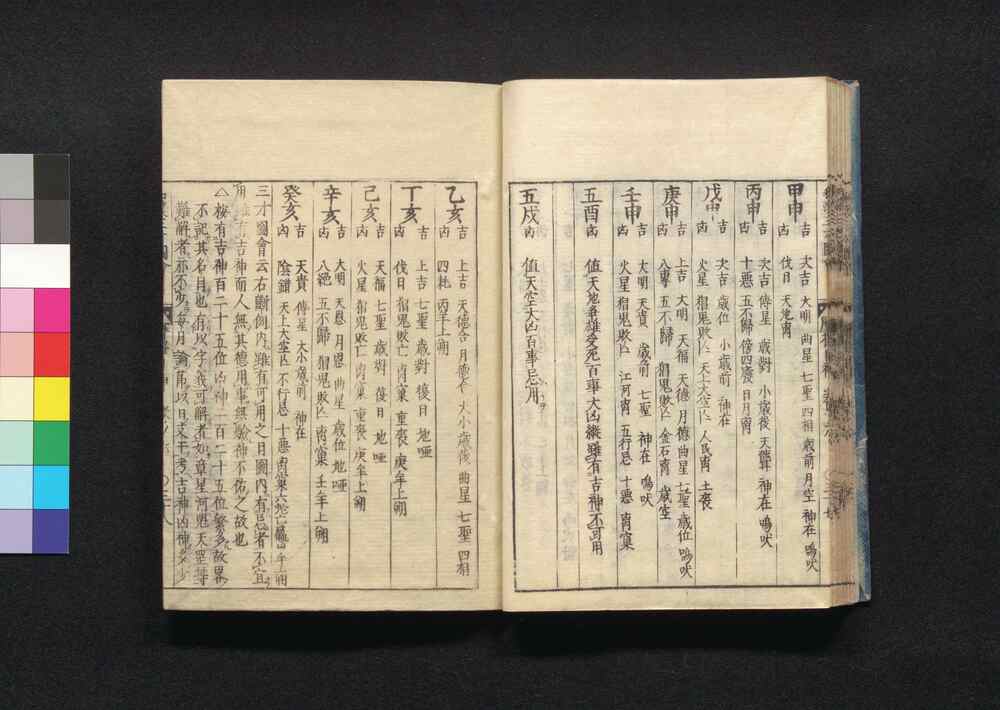 甲申
吉 次吉 大明 曲星 七聖 四相 歳前 月空 神在 鳴吠
凶 伐日 天地害
丙申
吉 次吉 傳星 歳對 小歳後 天聾 神在 鳴吠
凶 十悪 五不歸 傍四廢 日月害
戊申
吉 次吉 歳位 小歳前 神在
凶 火星 猖鬼敗亡 天上大空亡 人民害 土喪
庚申
吉 上吉 大明 天福 天德 月德 曲星 七聖 歳位 鳴吠
凶 八專 五不歸 猖鬼敗亡 金石害 歳空
壬申
吉 大明 天貴 歳前 七聖 神在 鳴吠
凶 火星 猖鬼敗亡 江河害 五行忌 十悪 害窠
五酉
凶 値天地爭雄受死百事大凶縱雖有吉神不可用
五戌
凶 値天空大凶百事忌用
乙亥
吉 上吉 天德合 月德合 大小歳後 曲星 七聖 四相
凶 四耗 丙年上朔
丁亥
吉 上吉 七聖 歳對 後日 地啞
凶 伐日 猖鬼敗亡 害窠 重喪 庚年上朔
己亥
吉 天福 七聖 歳對 後日 地啞
凶 火星 猖鬼敗亡 害窠 重喪 庚年上朔
辛亥
吉 大明 天恩 月恩 曲星 歳位 地啞
凶 八絶 五不歸 猖鬼敗亡 害窠 壬年上朔
癸亥
吉 天貴 傳星 大小歳前 神在
凶 陰錯 天上大空亡 不行忌 十悪 害窠 六蛇 上朔
三才圖會云右斷例内雖有可用之日圖内有忌者不宜
用雖有吉神而人無其德用事無驗神不佑之故也
△按有吉神百二十五位凶神一百二十五位繁多故畧
不記其名目也有以字義可解者如章星河魁天罡等
難解者亦不少毎月論所以日支干考吉神凶神多少